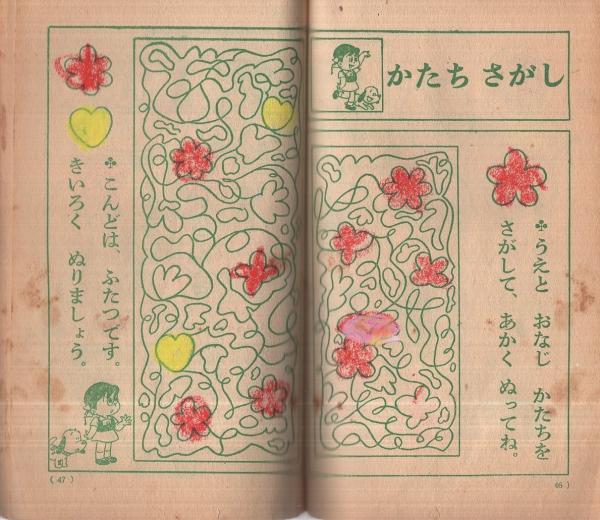 かたち さがし
✤うえと おなじ かたちを
さがして、あかく ぬってね。
✤こんどは、ふたつです。
きいろく ぬりましょう。
(47)